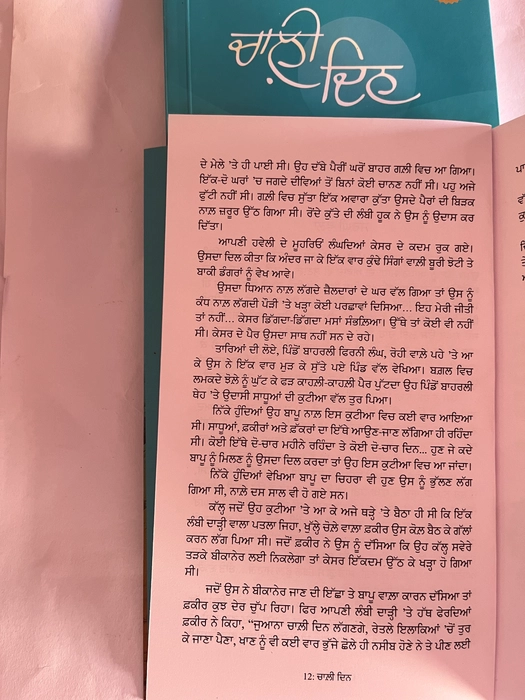 ਚਾਲ਼ੀ
ਦਿਨ
ਦੇ ਮੇਲੇ 'ਤੇ ਹੀ ਪਾਈ ਸੀ। ਉਹ ਦੱਬੇ ਪੈਰੀਂ ਘਰੋਂ ਬਾਹਰ ਗਲ਼ੀ ਵਿਚ ਆ ਗਿਆ।
ਇੱਕ-ਦੋ ਘਰਾਂ 'ਚ ਜਗਦੇ ਦੀਵਿਆਂ ਤੋਂ ਬਿਨਾਂ ਕੋਈ ਚਾਨਣ ਨਹੀਂ ਸੀ। ਪਹੁ ਅਜੇ
ਫੁੱਟੀ ਨਹੀਂ ਸੀ। ਗਲ਼ੀ ਵਿਚ ਸੁੱਤਾ ਇੱਕ ਅਵਾਰਾ ਕੁੱਤਾ ਉਸਦੇ ਪੈਰਾਂ ਦੀ ਬਿੜਕ
ਨਾਲ਼ ਜ਼ਰੂਰ ਉੱਠ ਗਿਆ ਸੀ। ਰੋਂਦੇ ਕੁੱਤੇ ਦੀ ਲੰਬੀ ਹੂਕ ਨੇ ਉਸ ਨੂੰ ਉਦਾਸ ਕਰ
ਦਿੱਤਾ।
ਆਪਣੀ ਹਵੇਲੀ ਦੇ ਮੂਹਰਿਓਂ ਲੰਘਦਿਆਂ ਕੇਸਰ ਦੇ ਕਦਮ ਰੁਕ ਗਏ।
ਉਸਦਾ ਦਿਲ ਕੀਤਾ ਕਿ ਅੰਦਰ ਜਾ ਕੇ ਇੱਕ ਵਾਰ ਕੁੰਢੇ ਸਿੰਗਾਂ ਵਾਲ਼ੀ ਬੂਰੀ ਝੋਟੀ ਤੇ
ਬਾਕੀ ਡੰਗਰਾਂ ਨੂੰ ਵੇਖ ਆਵੇ।
ਉਸਦਾ ਧਿਆਨ ਨਾਲ਼ ਲੱਗਦੇ ਜ਼ੈਲਦਾਰਾਂ ਦੇ ਘਰ ਵੱਲ ਗਿਆ ਤਾਂ ਉਸ ਨੂੰ
ਕੰਧ ਨਾਲ਼ ਲੱਗਦੀ ਪੌੜੀ 'ਤੇ ਖੜ੍ਹਾ ਕੋਈ ਪਰਛਾਵਾਂ ਦਿਸਿਆ... ਇਹ ਮੇਰੀ ਜੀਤੀ
ਤਾਂ ਨਹੀਂ... ਕੇਸਰ ਡਿੱਗਦਾ-ਡਿੱਗਦਾ ਮਸਾਂ ਸੰਭਲਿਆ। ਉੱਥੇ ਤਾਂ ਕੋਈ ਵੀ ਨਹੀਂ
ਸੀ। ਕੇਸਰ ਦੇ ਪੈਰ ਉਸਦਾ ਸਾਥ ਨਹੀਂ ਸਨ ਦੇ ਰਹੇ।
ਤਾਰਿਆਂ ਦੀ ਲੋਏ, ਪਿੰਡੋਂ ਬਾਹਰਲੀ ਫਿਰਨੀ ਲੰਘ, ਰੋਹੀ ਵਾਲ਼ੇ ਪਹੇ 'ਤੇ ਆ
ਕੇ ਉਸ ਨੇ ਇੱਕ ਵਾਰ ਮੁੜ ਕੇ ਸੁੱਤੇ ਪਏ ਪਿੰਡ ਵੱਲ ਵੇਖਿਆ। ਬਗ਼ਲ ਵਿਚ
ਲਮਕਦੇ ਝੋਲ਼ੇ ਨੂੰ ਘੁੱਟ ਕੇ ਫੜ ਕਾਹਲ਼ੀ-ਕਾਹਲ਼ੀ ਪੈਰ ਪੁੱਟਦਾ ਉਹ ਪਿੰਡੋਂ ਬਾਹਰਲੀ
ਥੇਹ 'ਤੇ ਉਦਾਸੀ ਸਾਧੂਆਂ ਦੀ ਕੁਟੀਆ ਵੱਲ ਤੁਰ ਪਿਆ।
ਨਿੱਕੇ ਹੁੰਦਿਆਂ ਉਹ ਬਾਪੂ ਨਾਲ਼ ਇਸ ਕੁਟੀਆ ਵਿਚ ਕਈ ਵਾਰ ਆਇਆ
ਸੀ। ਸਾਧੂਆਂ, ਫ਼ਕੀਰਾਂ ਅਤੇ ਫ਼ੱਕਰਾਂ ਦਾ ਇੱਥੇ ਆਉਣ-ਜਾਣ ਲੱਗਿਆ ਹੀ ਰਹਿੰਦਾ
ਸੀ। ਕੋਈ ਇੱਥੇ ਦੋ-ਚਾਰ ਮਹੀਨੇ ਰਹਿੰਦਾ ਤੇ ਕੋਈ ਦੋ-ਚਾਰ ਦਿਨ... ਹੁਣ ਜੇ ਕਦੇ
ਬਾਪੂ ਨੂੰ ਮਿਲਣ ਨੂੰ ਉਸਦਾ ਦਿਲ ਕਰਦਾ ਤਾਂ ਉਹ ਇਸ ਕੁਟੀਆ ਵਿਚ ਆ ਜਾਂਦਾ।
ਨਿੱਕੇ ਹੁੰਦਿਆਂ ਵੇਖਿਆ ਬਾਪੂ ਦਾ ਚਿਹਰਾ ਵੀ ਹੁਣ ਉਸ ਨੂੰ ਭੁੱਲਣ ਲੱਗ
ਗਿਆ ਸੀ, ਨਾਲ਼ੇ ਦਸ ਸਾਲ ਵੀ ਹੋ ਗਏ ਸਨ।
ਕੱਲ੍ਹ ਜਦੋਂ ਉਹ ਕੁਟੀਆ 'ਤੇ ਆ ਕੇ ਅਜੇ ਥੜ੍ਹੇ 'ਤੇ ਬੈਠਾ ਹੀ ਸੀ ਕਿ ਇੱਕ
ਲੰਬੀ ਦਾੜ੍ਹੀ ਵਾਲਾ ਪਤਲਾ ਜਿਹਾ, ਖੁੱਲ੍ਹੇ ਚੋਲ਼ੇ ਵਾਲ਼ਾ ਫ਼ਕੀਰ ਉਸ ਕੋਲ਼ ਬੈਠ ਕੇ ਗੱਲਾਂ
ਕਰਨ ਲੱਗ ਪਿਆ ਸੀ। ਜਦੋਂ ਫ਼ਕੀਰ ਨੇ ਉਸ ਨੂੰ ਦੱਸਿਆ ਕਿ ਉਹ ਕੱਲ੍ਹ ਸਵੇਰੇ
ਤੜਕੇ ਬੀਕਾਨੇਰ ਲਈ ਨਿਕਲੇਗਾ ਤਾਂ ਕੇਸਰ ਇੱਕਦਮ ਉੱਠ ਕੇ ਖੜ੍ਹਾ ਹੋ ਗਿਆ
ਸੀ।
ਜਦੋਂ ਉਸ ਨੇ ਬੀਕਾਨੇਰ ਜਾਣ ਦੀ ਇੱਛਾ ਤੇ ਬਾਪੂ ਵਾਲਾ ਕਾਰਨ ਦੱਸਿਆ ਤਾਂ
ਫ਼ਕੀਰ ਕੁਝ ਦੇਰ ਚੁੱਪ ਰਿਹਾ। ਫਿਰ ਆਪਣੀ ਲੰਬੀ ਦਾੜ੍ਹੀ 'ਤੇ ਹੱਥ ਫੇਰਦਿਆਂ
ਫ਼ਕੀਰ ਨੇ ਕਿਹਾ, "ਜੁਆਨਾ ਚਾਲ਼ੀ ਦਿਨ ਲੱਗਣਗੇ, ਰੇਤਲੇ ਇਲਾਕਿਆਂ 'ਚੋਂ ਤੁਰ
ਕੇ ਜਾਣਾ ਪੈਣਾ, ਖਾਣ ਨੂੰ ਵੀ ਕਈ ਵਾਰ ਭੁੱਜੇ ਛੋਲੇ ਹੀ ਨਸੀਬ ਹੋਣੇ ਨੇ ਤੇ ਪੀਣ ਲਈ
12: ਚਾਲ਼ੀ ਦਿਨ